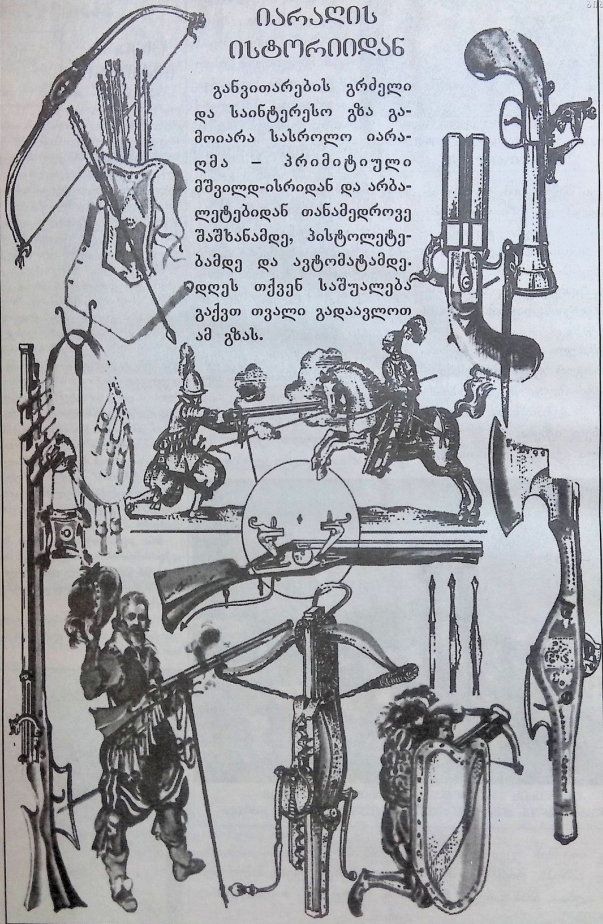 იარაღის
ისტორიიდან
განვითარების გრძელი
და საინტერესო გზა გა-
მოიარა სასროლო იარა-
ღმა – პრიმიტიული
მშვილდ-ისრიდან და არბა-
ლეტებიდან თანამედროვე
შაშხანამდე, პისტოლეტე-
ბამდე და ავტომატამდე.
დღეს თქვენ საშუალება
გაქვთ თვალი გადაავლოთ
ამ გზას.